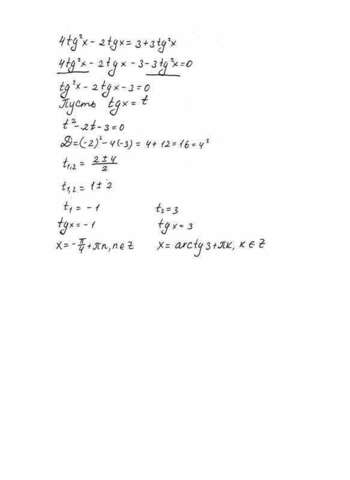 4tg²x - 2tgx = 3 + 3tg²x
4tg²x - 2tgx - 3 - 3tg²x = 0
tg²x - 2tgx - 3 = 0
Пусть tgx = t
t² - 2t - 3 = 0
D = (-2)² - 4(-3) = 4 + 12 = 16 = 4²
t₁,₂ = (2 ± 4)/2
t₁,₂ = 1 ± 2
t₁ = -1    t₂ = 3
tgx = -1    tgx = 3
x = -π/4 + πn, n ∈ Z    x = arctg3 + πk, k ∈ Z